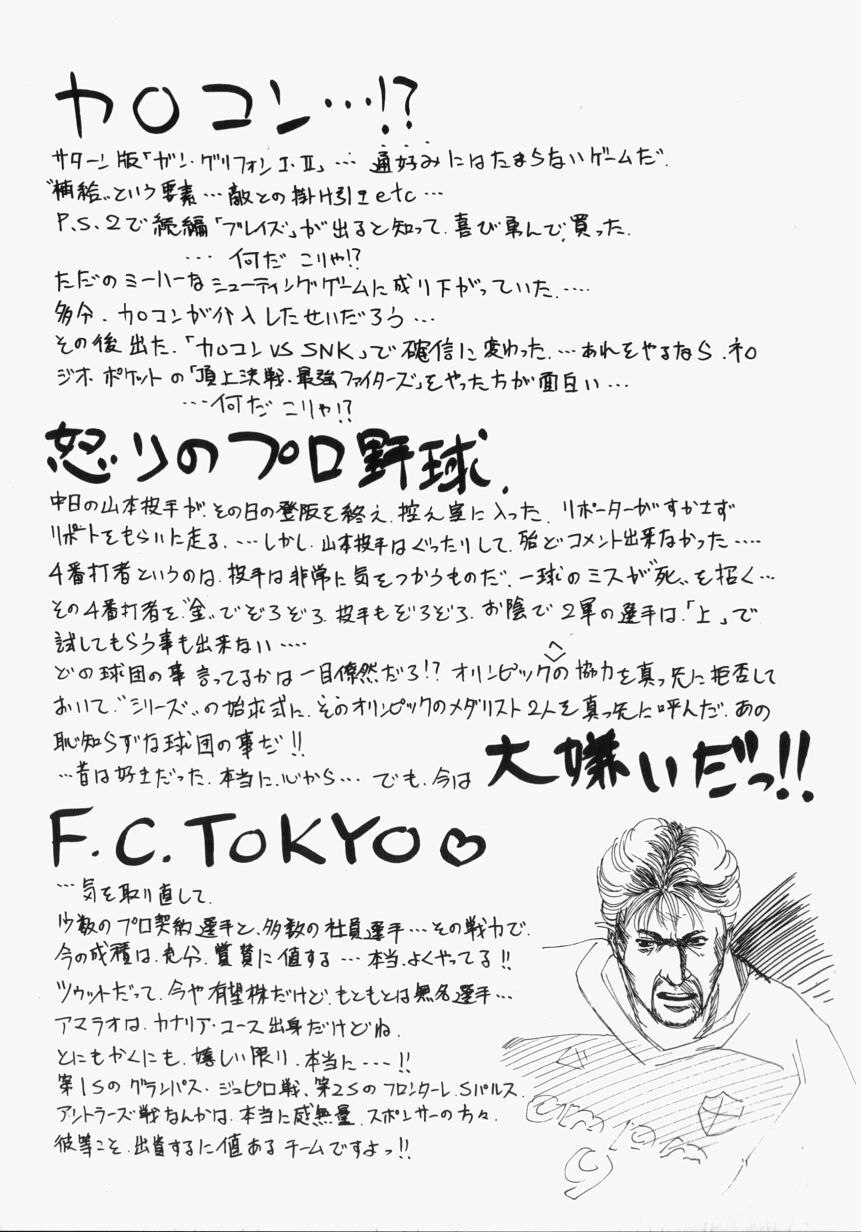 カ〇コン…!?
サターン版「ガン・グリフォンⅠ・Ⅱ」… 通好みにはたまらないゲームだ.
"補給"という要素…敵との掛け引きetc…
P.S.2で続編「ブレイズ」が出ると知って.喜び勇んで.買った.
… 何だ こりゃ!?
ただのミーハーなシューティングゲームに成り下がっていた.….
多分.カ〇コンが介入したせいだろう…
その後出た.「カ〇コンVS SNK」で確信に変わった.…あれをやるなら.ネ〇
ジオ.ポケットの「頂上決戦.最強ファイターズ」をやった方が面白い…
…何だ こりゃ!?
怒りのプロ野球.
中日の山本投手が.その日の登版を終え.控え室に入った.リポーターがすかさず
リポートをもらいに走る.…しかし.山本投手はぐったりして.殆どコメント出来なかった….
4番打者というのは.投手は非常に気をつかうものだ.一球のミスが"死"を招く…
その4番打者を"金"でぞろぞろ.投手もぞろぞろ.お陰で2軍の選手は.「上」で
試してもらう事も出来ない….
どの球団の事 言ってるかは一目僚然だろ!? オリンピックへの協力を真っ先に拒否して
おいて."シリーズ"の始求式に.そのオリンピックのメダリスト2人を真っ先に呼んだ.あの
恥知らずな球団の事だ!!
…昔は好きだった.本当に.心から… でも.今は 大嫌いだっ!!
F.C.TOKYO♡
…気を取り直して.
少数のプロ契約選手と.多数の社員選手…その戦力で.
今の成種は.充分.賞賛に値する…本当.よくやってる!!
ツゥットだって.今や有望株だけど.もともとは無名選手…
アマラオは.カナリア・ユース出身だけどね.
とにもかくにも.嬉しい限り.本当に…!!
第1Sのグランパス・ジュビロ戦、第2Sのフロンターレ.Sパルス.
アントラーズ戦なんかは.本当に感無量.スポンサーの方々.
彼等こそ.出資するに値あるチームですよっ!!
am pm
9